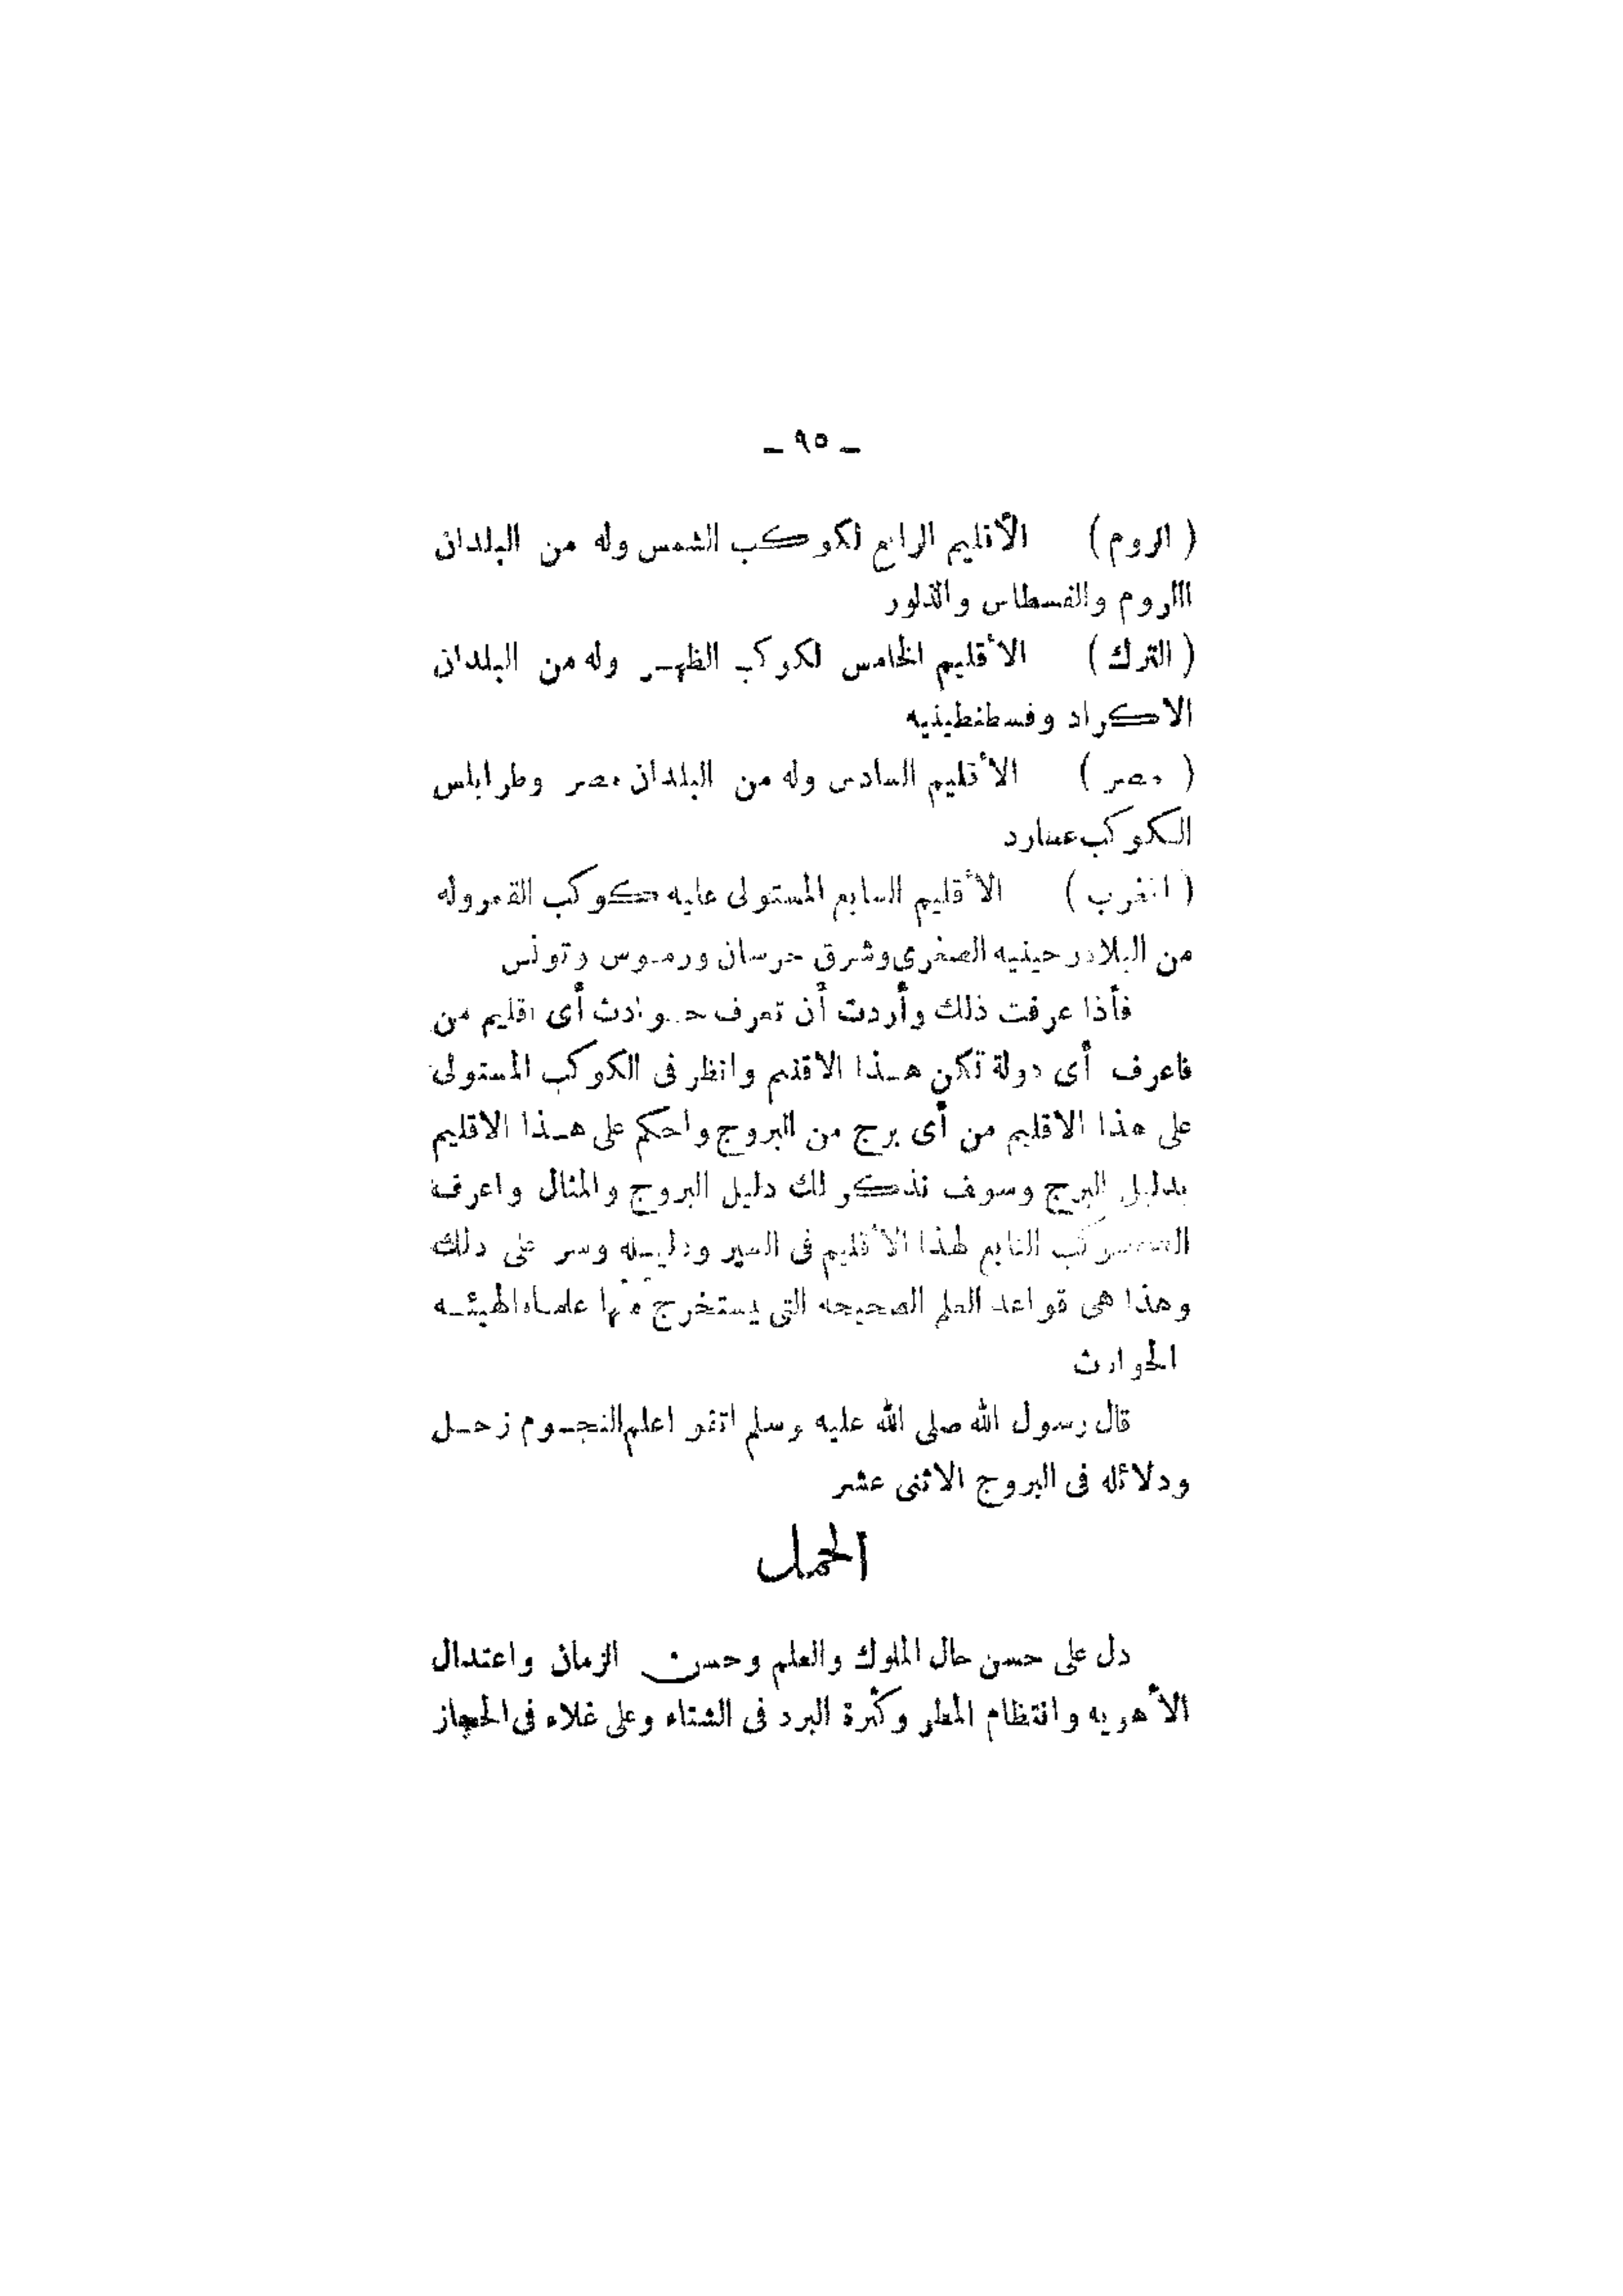 – ٩٥ –
( الروم ) الأقليم الرابع لكوكب الشمس وله من البلدان
الروم والفسطاس والذلور
( الترك ) الأقليم الخامس لكوكب الظهر وله من البلدان
الاكراد وقسطنطينيه
( مصر ) الأقليم السادس وله من البلدان مصر وطرابلس
الكوكب عطارد
( المغرب ) الأقليم السابع المستولى عليه كوكب القمر وله
من البلاد الصغرى وشرق خرسان ورموس وتونس
فأذا عرفت ذلك وأردت أن تعرف حوادث أى اقليم من
فاعرف أى دولة تكن هذا الاقليم وانظر فى الكوكب المستولى
على هذا الاقليم من أى برج من البروج واحكم على هذا الاقليم
بدليل البرج وسوف نذكر لك دليل البروج والمثال واعرف
الكوكب التابع لهذا الأقليم فى السير ودليله وسر على ذلك
وهذا هى قواعد العلم الصحيحه التى يستخرج منها علماء الهيئه
الحوادث
قال رسول الله صلى الله عليه وسلم اعلم النجوم زحل
ودلائله فى البروج الاثنى عشر
الحمل
دل على حسن حال الملوك والعلم وحسن الزمان واعتدال
الأهويه وانتظام المطر وكثرة البرد فى الشتاء وعلى غلاء فى الحجاز